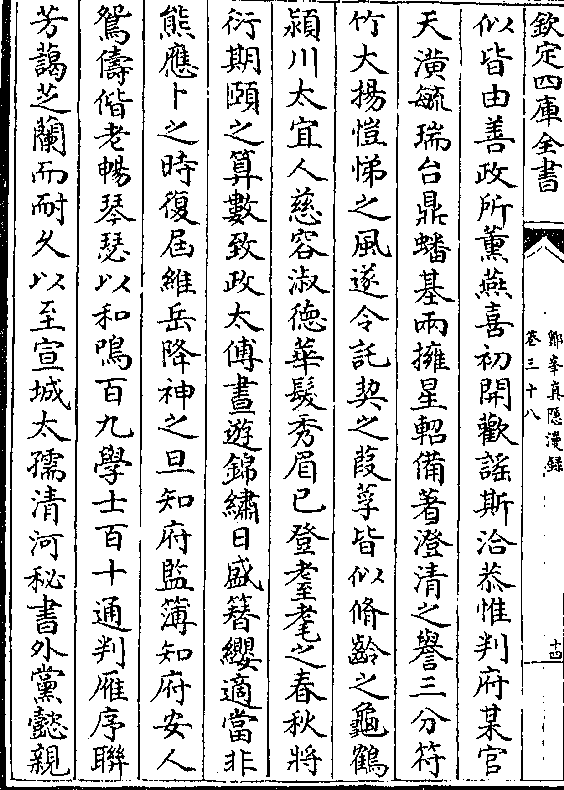 欽定四庫全書
鄮峯真隱漫錄
卷三十八
十四
似皆由善政所薰燕喜初開歡謡斯洽恭惟判府某官
天潢毓瑞台鼎蟠基兩擁星軺備著澄清之譽三分符
竹大揚愷悌之風遂令託契之葭莩皆似脩齡之龜鶴
潁川太宜人慈容淑德華髮秀眉已登耄耋之春秋將
衍期頤之算數致政太傅晝遊錦繡日盛簮纓適當非
熊應卜之時復屆維岳降神之旦知府監簿知府安人
鴛儔偕老暢琴瑟以和鳴百九學士百十通判雁序聯
芳藹芝蘭而耐久以至宣城太孺清河秘書外黨懿親